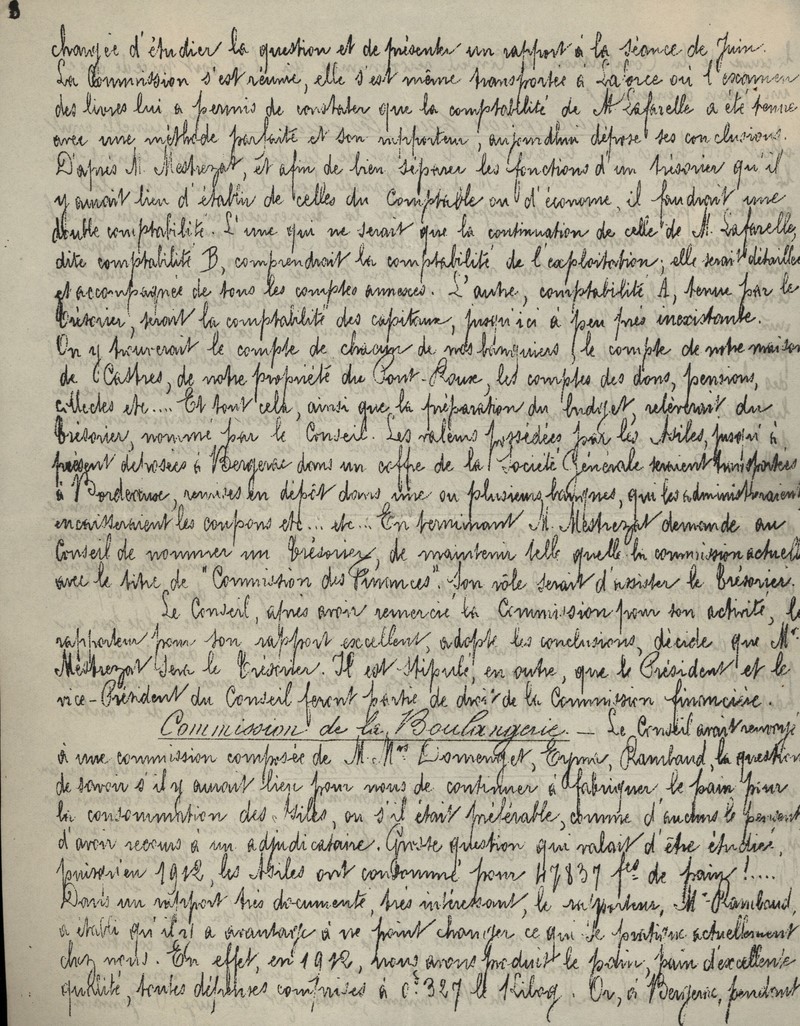 8
chargée d'étudier la question et de présenter un rapport à la séance de Juin.
La Commission s'est réunie, elle s'est même transportée à Laforce où l'examen
des livres lui a permis de constater que la comptabilité de M. Lafarelle a été tenue
avec une méthode parfaite et son rapporteur, aujourd'hui dépose ses conclusions.
D'après M. Mestrezat, et afin de bien séparer les fonctions d'un trésorier qu'il
y aurait lieu d'établir de celles du Comptable ou d'économe, il faudrait une
double comptabilité. L'une qui ne serait que la continuation de celle de M. Lafarelle,
dite comptabilité B, comprendrait la comptabilité de l'exploitation; elle serait détaillée
et accompagnée de tous les comptes annexes. L'autre, comptabilité A, tenue par le
Trésorier, serait la comptabilité des capitaux, jusqu'ici à peu près inexistante.
On y trouverait le compte de chacun de nos banquiers, le compte de notre maison
de Castres, de notre propriété du Pont-Roux, les comptes des dons, pensions,
collectes etc.... Et tout cela, ainsi que la préparation du budget, relèverait du
Trésorier, nommé par le Conseil. Les valeurs possédées par les Asiles, jusqu'à
présent déposées à Bergerac dans un coffre de la Société Générale seraient transportées
à Bordeaux, remises en dépôt dans une ou plusieurs banques, qui les administreraient
encaisseraient les coupons etc... etc... En terminant M. Mestrezat demande au
Conseil de nommer un Trésorier, de maintenir telle quelle la commission actuelle
avec le titre de "Commission des Finances". Son rôle serait d'assister le Trésorier.
Le Conseil, après avoir remercié la Commission pour son activité, le
rapporteur pour son rapport excellent, adopte les conclusions, décide que Mr.
Mestrezat sera le Trésorier. Il est stipulé, en outre, que le Président et le
vice-Président du Conseil feront partie de droit de la Commission financière.
Commission de la Boulangerie. — Le Conseil avait renvoyé
à une commission composée de M. Mrs Domenget, Eyma, Rambaud, la question
de savoir s'il y aurait lieu pour nous de continuer à fabriquer le pain pour
la consommation des Asiles, ou s'il était préférable, comme d'aucuns le pensent
d'avoir recours à un adjudicataire. Grosse question qui valait d'être étudiée,
puisqu'en 1912, les Asiles ont consommé pour 47837 fcs de pain!....
Dans un rapport très documenté, très intéressant, le rapporteur, Mr Rambaud,
a établi qu'il y a avantage à ne point changer ce qui se pratique actuellement
chez nous. En effet, en 1912, nous avons produit le pain, pain d'excellente
qualité, toutes dépenses comprises à 0f. 327 le Kilog. Or, à Bergerac, pendant